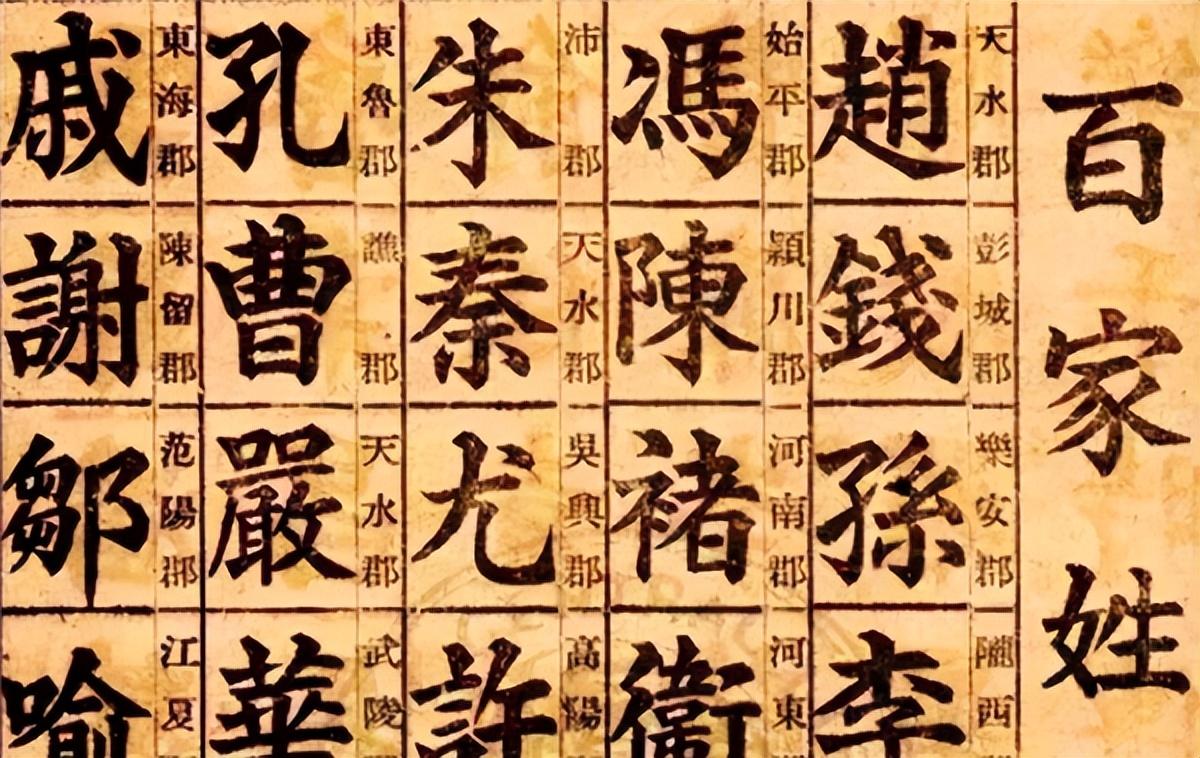 百家姓
天水郡
趙
彭城郡
錢
樂安郡
孫
隴西
李
始平郡
馮
潁川郡
陳
河南郡
褚
河東
衛
沛郡
朱
天水郡
秦
吳興郡
尤
高陽
許
東魯郡
孔
譙郡
曹
天水郡
嚴
武陵
華
東海郡
戚
陳留郡
謝
范陽郡
鄒
江夏
喻